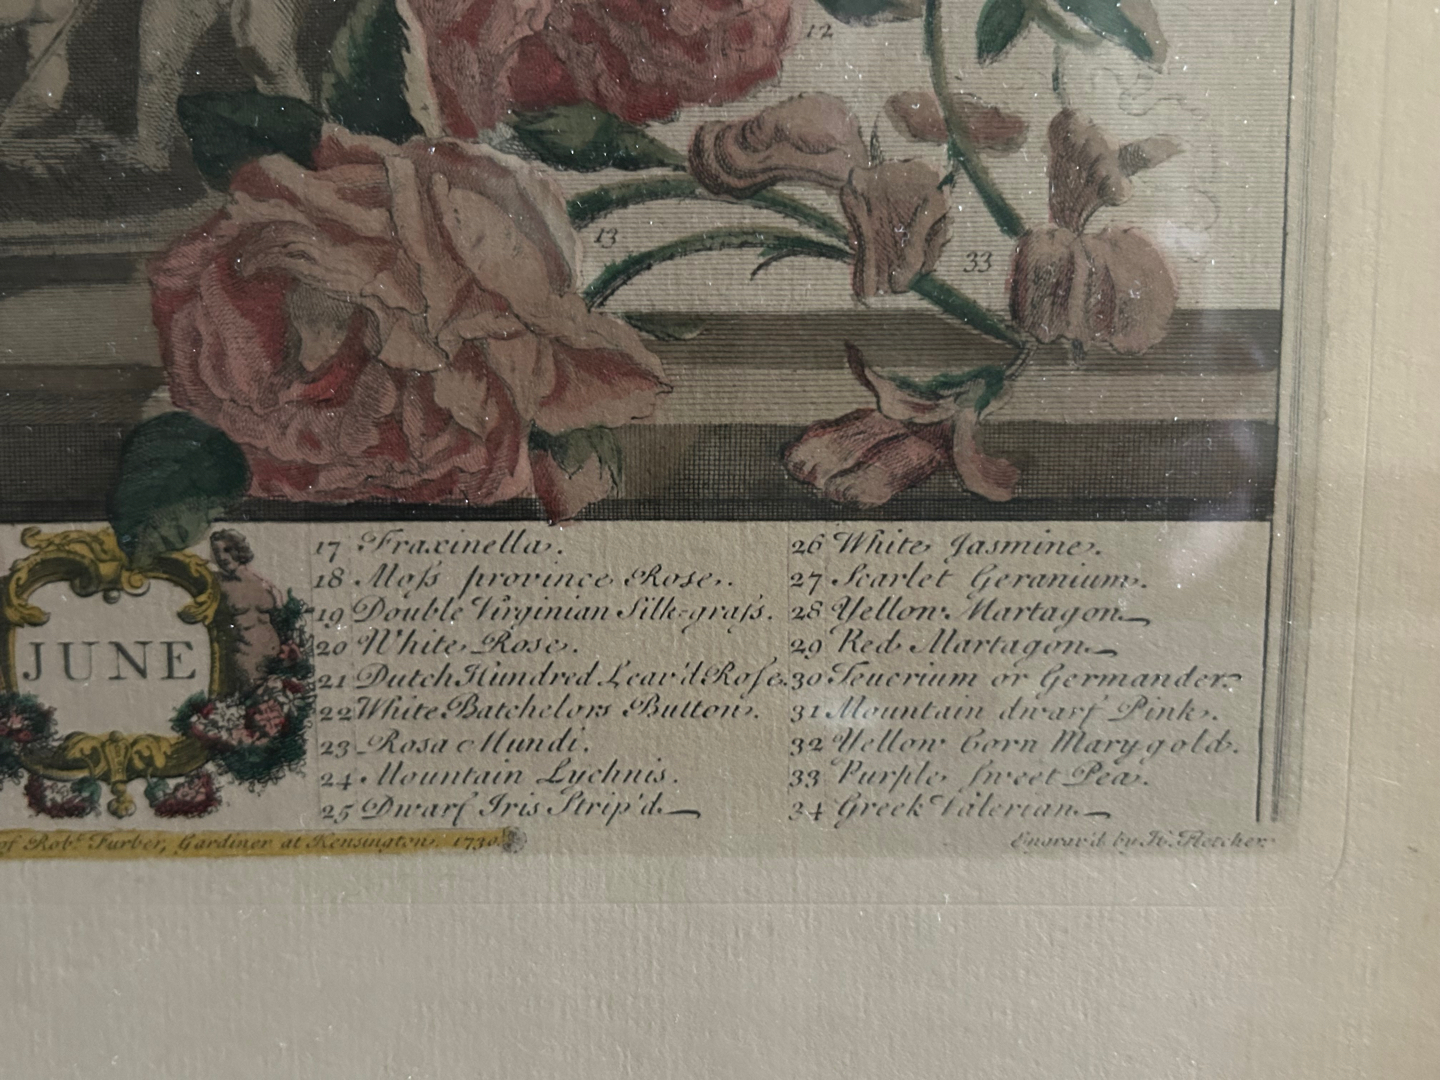 12
13
33
JUNE
17 Fraxinella.
18 Moſs province Rose.
19 Double Virginian Silk-graſs.
20 White Rose.
21 Dutch Hundred Leav'd Roſe.
22 White Batchelors Button.
23 Rosa Mundi.
24 Mountain Lychnis.
25 Dwarf Iris Strip'd
26 White Jasmine.
27 Scarlet Geranium.
28 Yellow Martagon
29 Red Martagon
30 Teucrium or Germander.
31 Mountain dwarf Pink.
32 Yellow Corn Marygold.
33 Purple sweet Pea.
34 Greek Valerian
of Robt. Furber, Gardiner at Kensington. 1730.
Engrav'd by H. Fletcher.